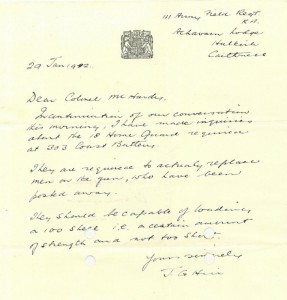 111 Army Field Regt
R.A.
Achavarn Lodge
Halkirk
Caithness
29 Jan 1942.
Dear Colonel McHardy,
In continuation of our conversation
this morning, I have made inquiries
about the 18 Home Guard required
at 303 Coast Battery.
They are required to actually replace
men on the gun, who have been
posted away.
They should be capable of loading
a 100 shell i.e. a certain amount
of strength and not too
Yours sincerely
J.